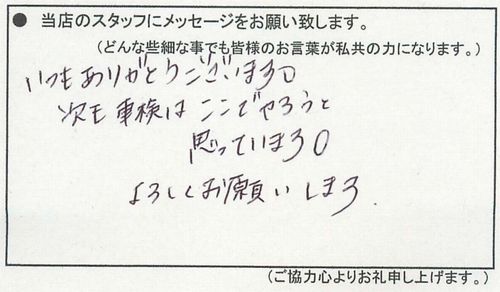 ● 当店のスタッフにメッセージをお願い致します。
(どんな些細な事でも皆様のお言葉が私共の力になります。)
いつもありがとうございます。
次も車検はここでやろうと
思っています。
よろしくお願いします
(ご協力心よりお礼申し上げます。)